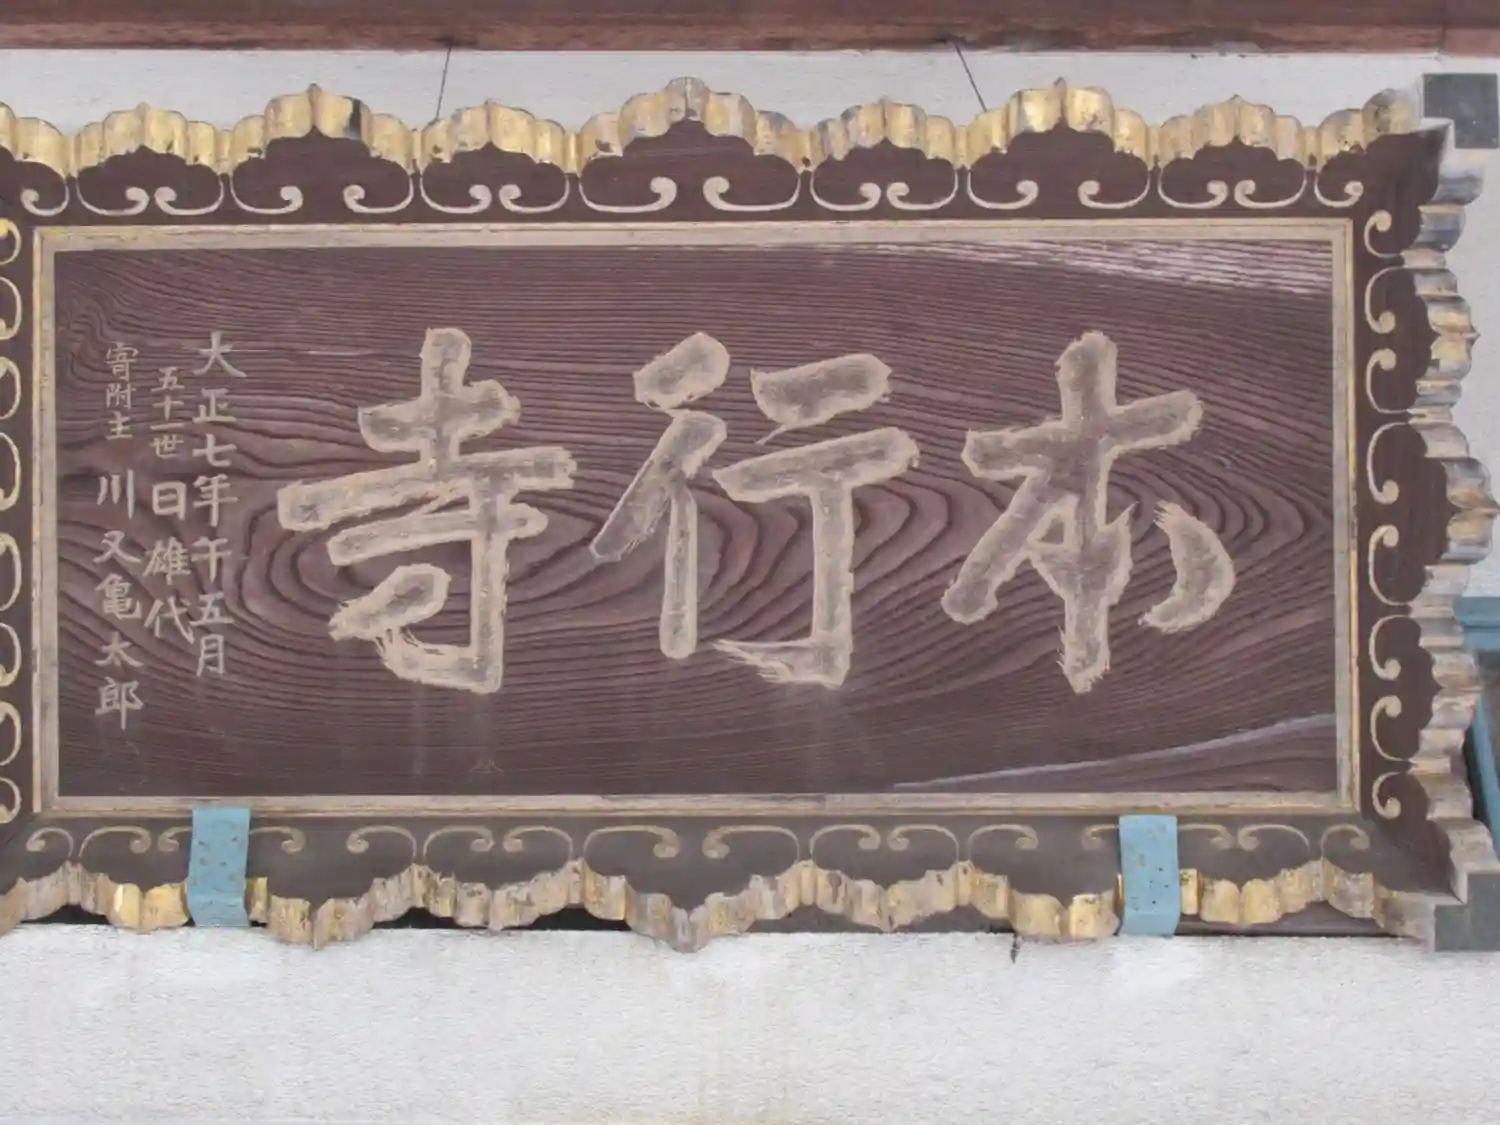 本行寺
大正七年午五月
五十一世 日雄代
寄附主 川又亀太郎